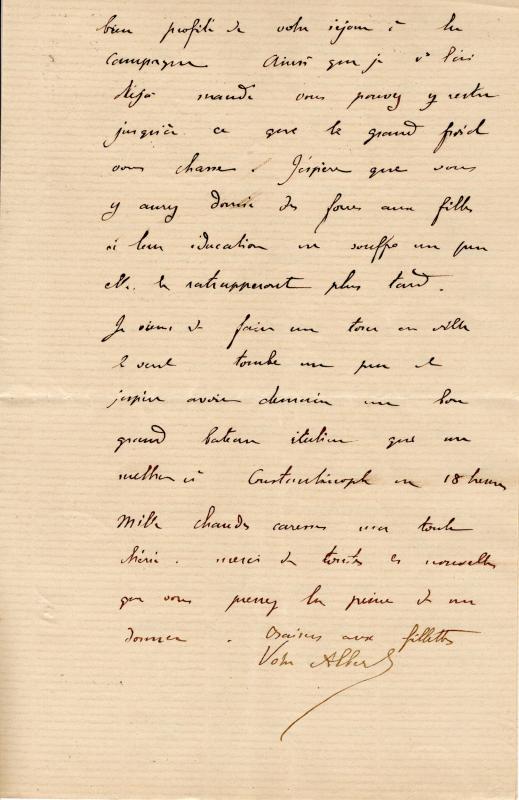 bien profité de votre séjour à la
campagne Ainsi que je v[ous] l'ai
déjà mandé vous pouvez y rester
jusqu'à ce que le grand froid
vous chasse. J'espère que vous
y aurez donné des forces aux filles
si leur éducation en souffre un peu
elles le rattrapperont plus tard.
Je viens de faire un tour en ville
le vent tombe un peu et
j'espère avoir demain un bon
grand bateau italien qui me
mettra à Constantinople en 18 heures
Mille chaudes caresses ma toute
chérie. merci de toutes les nouvelles
que vous prenez la peine de me
donner. Baisers aux fillettes
Votre Albert